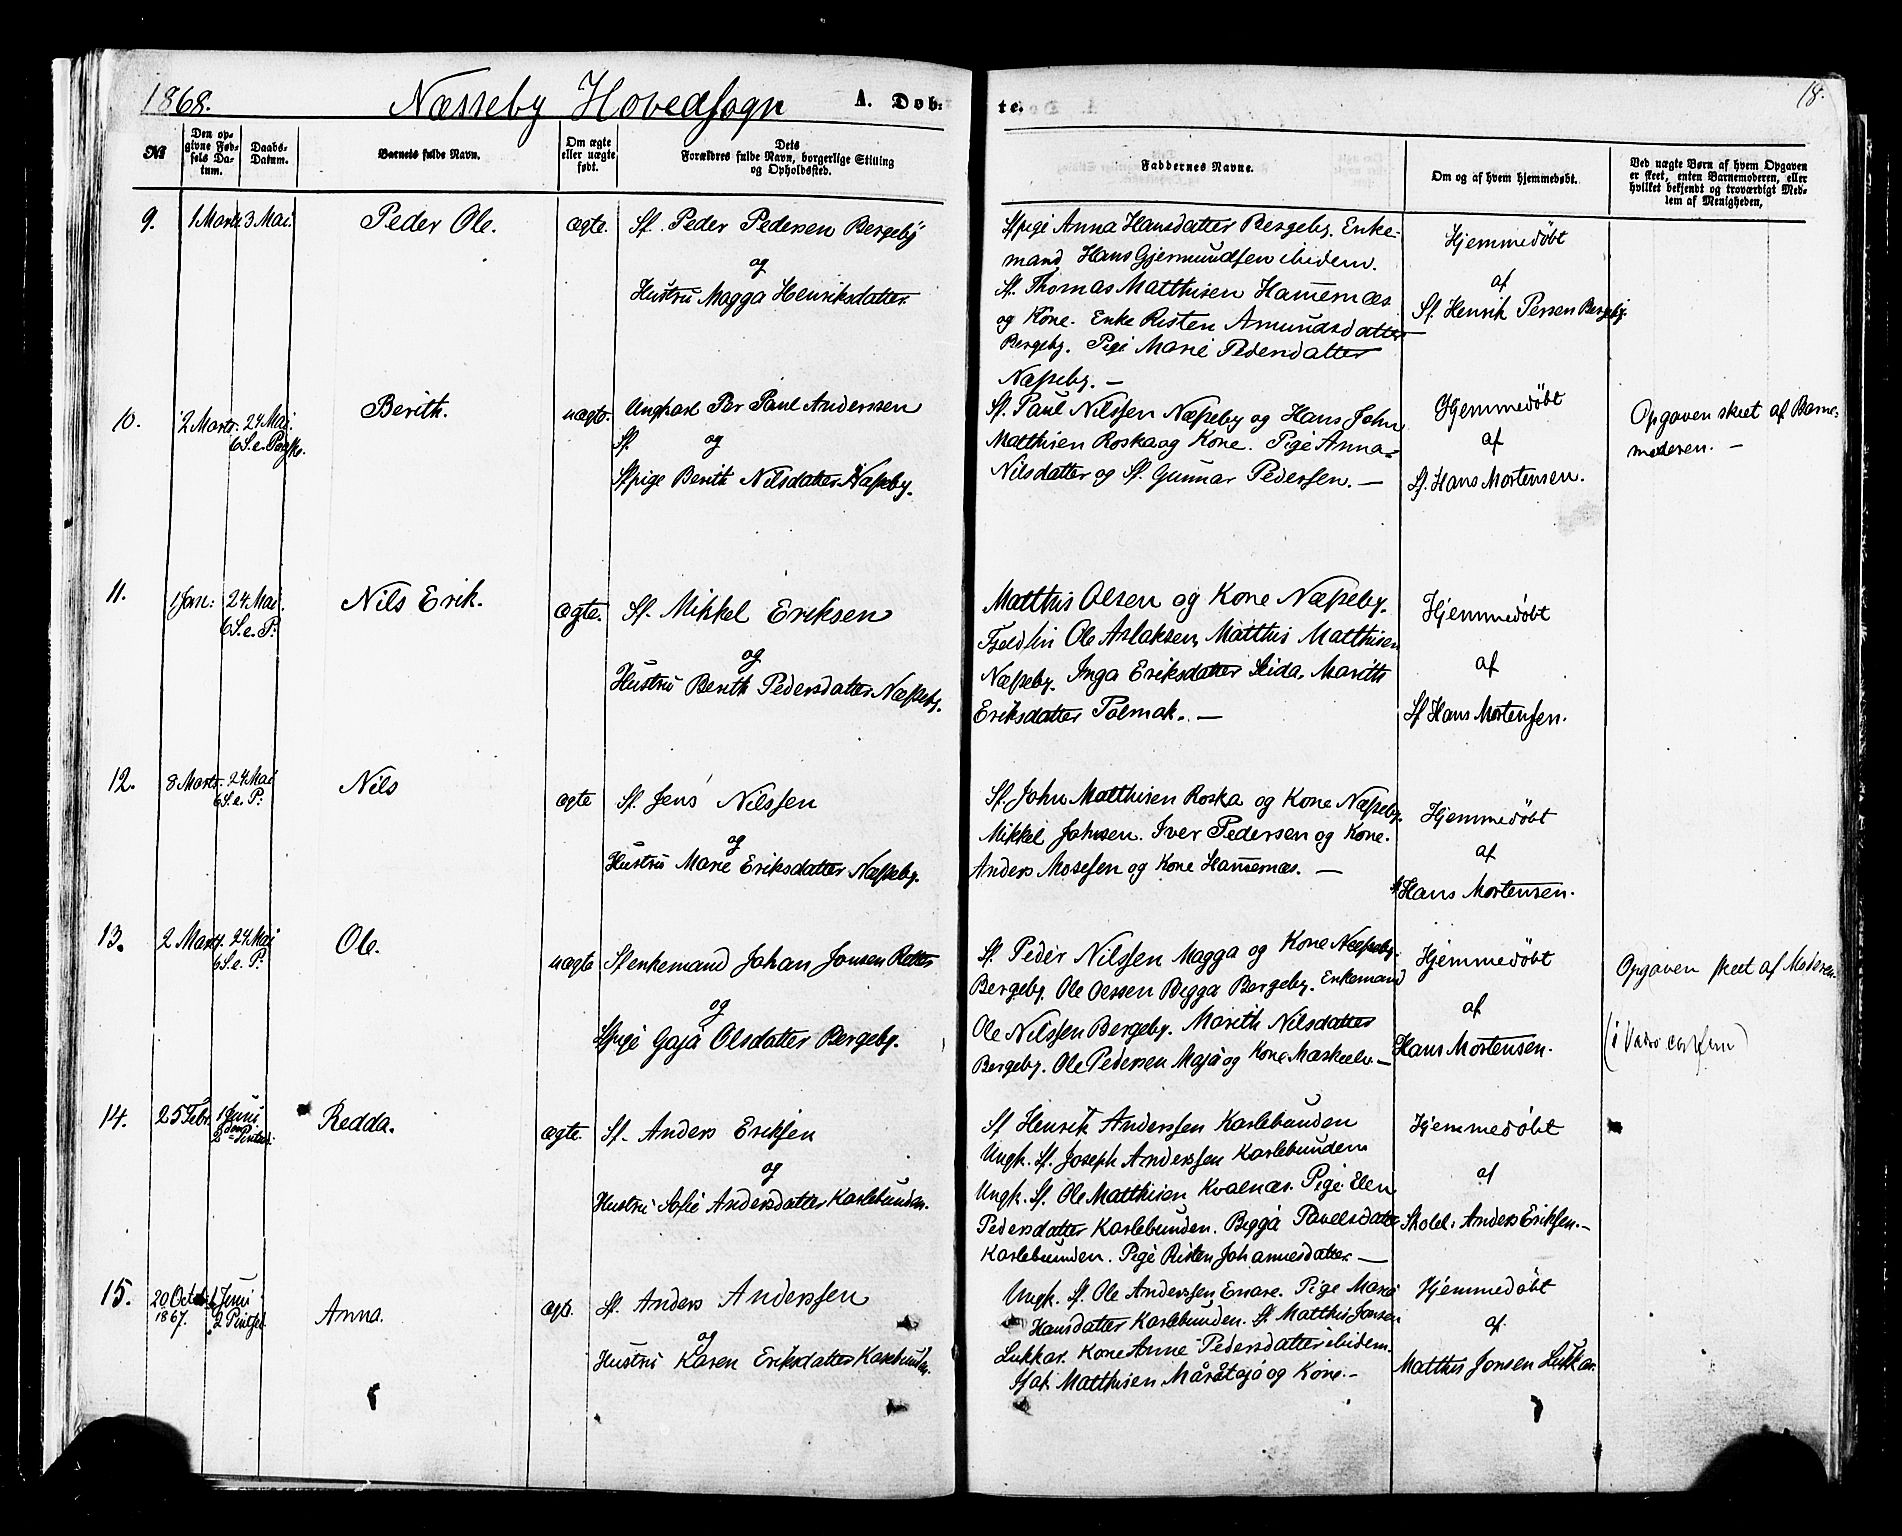 1868.
Næsseby Hovedsogn
A. Døb-
te.
18.
No
Den op-
givne Fød-
sels Da-
tum.
Daabs-
Datum.
Barnets fulde Navn.
Om ægte
eller uægte
født.
Dets
Forældres fulde Navn, borgerlige Stilling
og Opholdssted.
Faddernes Navne.
Om og af hvem hjemmedøbt.
Ved uægte Børn af hvem Opgaven
er skeet, enten Barnemoderen, eller
hvilket bekjendt og troværdigt Med-
lem af Menigheden,
9.
1 Marts
3 Mai.
Peder Ole.
ægte.
Sf. Peder Pedersen Bergeby
og
Hustru Magga Henriksdatter
Sfpige Anna Hansdatter Bergeby. Enke-
mand Hans Gjermundsen ibidem.
Sf. Thomas Matthisen Hammernæs
og Kone. Enke Risten Amundsdatter
Bergeby. Pige Marie Pedersdatter
Næsseby. —
Hjemmedøbt
af
Sf. Henrik Persen Bergeby.
10.
2 Marts.
24 Mai.
6 S. e. Paaske.
Berith.
uægte.
Ungkarl Per Paul Anderssen
Sf. og
Sfpige Berith Nilsdatter Næsseby.
Sf. Paul Nilssen Næsseby og Hans John
Matthisen Roska og Kone. Pige Anna
Nilsdatter og Sf. Gunnar Pedersen. —
Hjemmedøbt
af
Sf. Hans Mortensen.
Opgaven skeet af Barne-
moderen. —
11.
1 Jan:
24 Mai.
6 S. e. P:
Nils Erik.
ægte.
Sf. Mikkel Eriksen
og
Hustru Berith Pedersdatter Næsseby.
Matthis Olsen og Kone Næsseby.
Ole Aslaksen, Matthis Matthisen
Næsseby. Inga Eriksdatter Seida. Marith
Eriksdatter Polmak. —
Hjemmedøbt
af
Sf Hans Mortensen.
12.
8 Marts.
24 Mai
6 S. e. P:
Nils
ægte
Sf. Jens Nilssen
og
Hustru Marie Eriksdatter Næsseby.
Sf. John Matthisen Roska og Kone Næsseby.
Mikkel Johnsen. Iver Pedersen og Kone.
Anders Mosesen og Kone Hammernæs. —
Hjemmedøbt
af
Hans Mortensen.
13.
2 Marts.
24 Mai
6 S. e. P:
Ole.
uægte
Sfenkemand Johan Jonsen
og
Sfpige Gaja Olsdatter Bergeby.
Sf. Peder Nilssen Magga og Kone Næsseby.
Bergeby. Ole Olssen Bigga Bergeby. Enkemand
Ole Nilssen Bergeby. Marith Nilsdatter
Bergeby. Ole Pedersen Maja og Kone Maskelv —
Hjemmedøbt
af
Hans Mortensen.
Opgaven skeet af Moderen.
14.
25 Febr.
1 Juni.
2den Pintsed:
Redda.
ægte.
Sf. Anders Eriksen
og
Hustru Sofie Andersdatter Karlebunden.
Sf Henrik Anderssen Karlebunden
Ungk. Sf. Joseph Anderssen Karlebunden
Ungk. Sf. Ole Matthisen Kvalnæs. Pige Elen
Pedersdatter Karlebunden. Bigga Pavelsdatter
Karlebunden. Pige Risten Johannesdatter. —
Hjemmedøbt
af
Skolel: Anders Eriksen. —
15.
20 Octobr
1867.
1 Juni
2 Pintsed.
Anna.
ægte.
Sf. Anders Anderssen
og
Hustru Karen Eriksdatter Karlebunden.
Ungk. Sf. Ole Anderssen Enare. Pige Marie
Hansdatter Karlebunden. Sf. Matthis Jonsen
Lukkar. Kone Anne Pedersdatter ibidem.
Matthisen og Kone. —
Hjemmedøbt
af
Matthis Jonsen Lukkar.